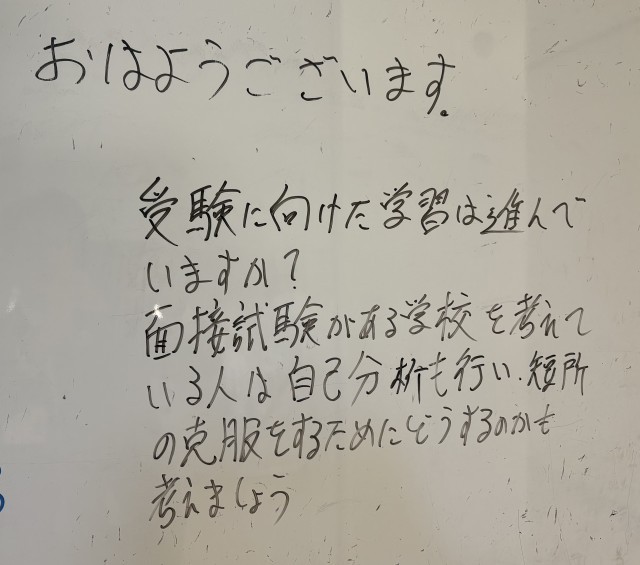 おはようございます.
受験に向けた学習は進んで
いますか?
面接試験がある学校を考えて
いる人は自己分析も行い、短所
の克服をするためにどうするのかも
考えましょう